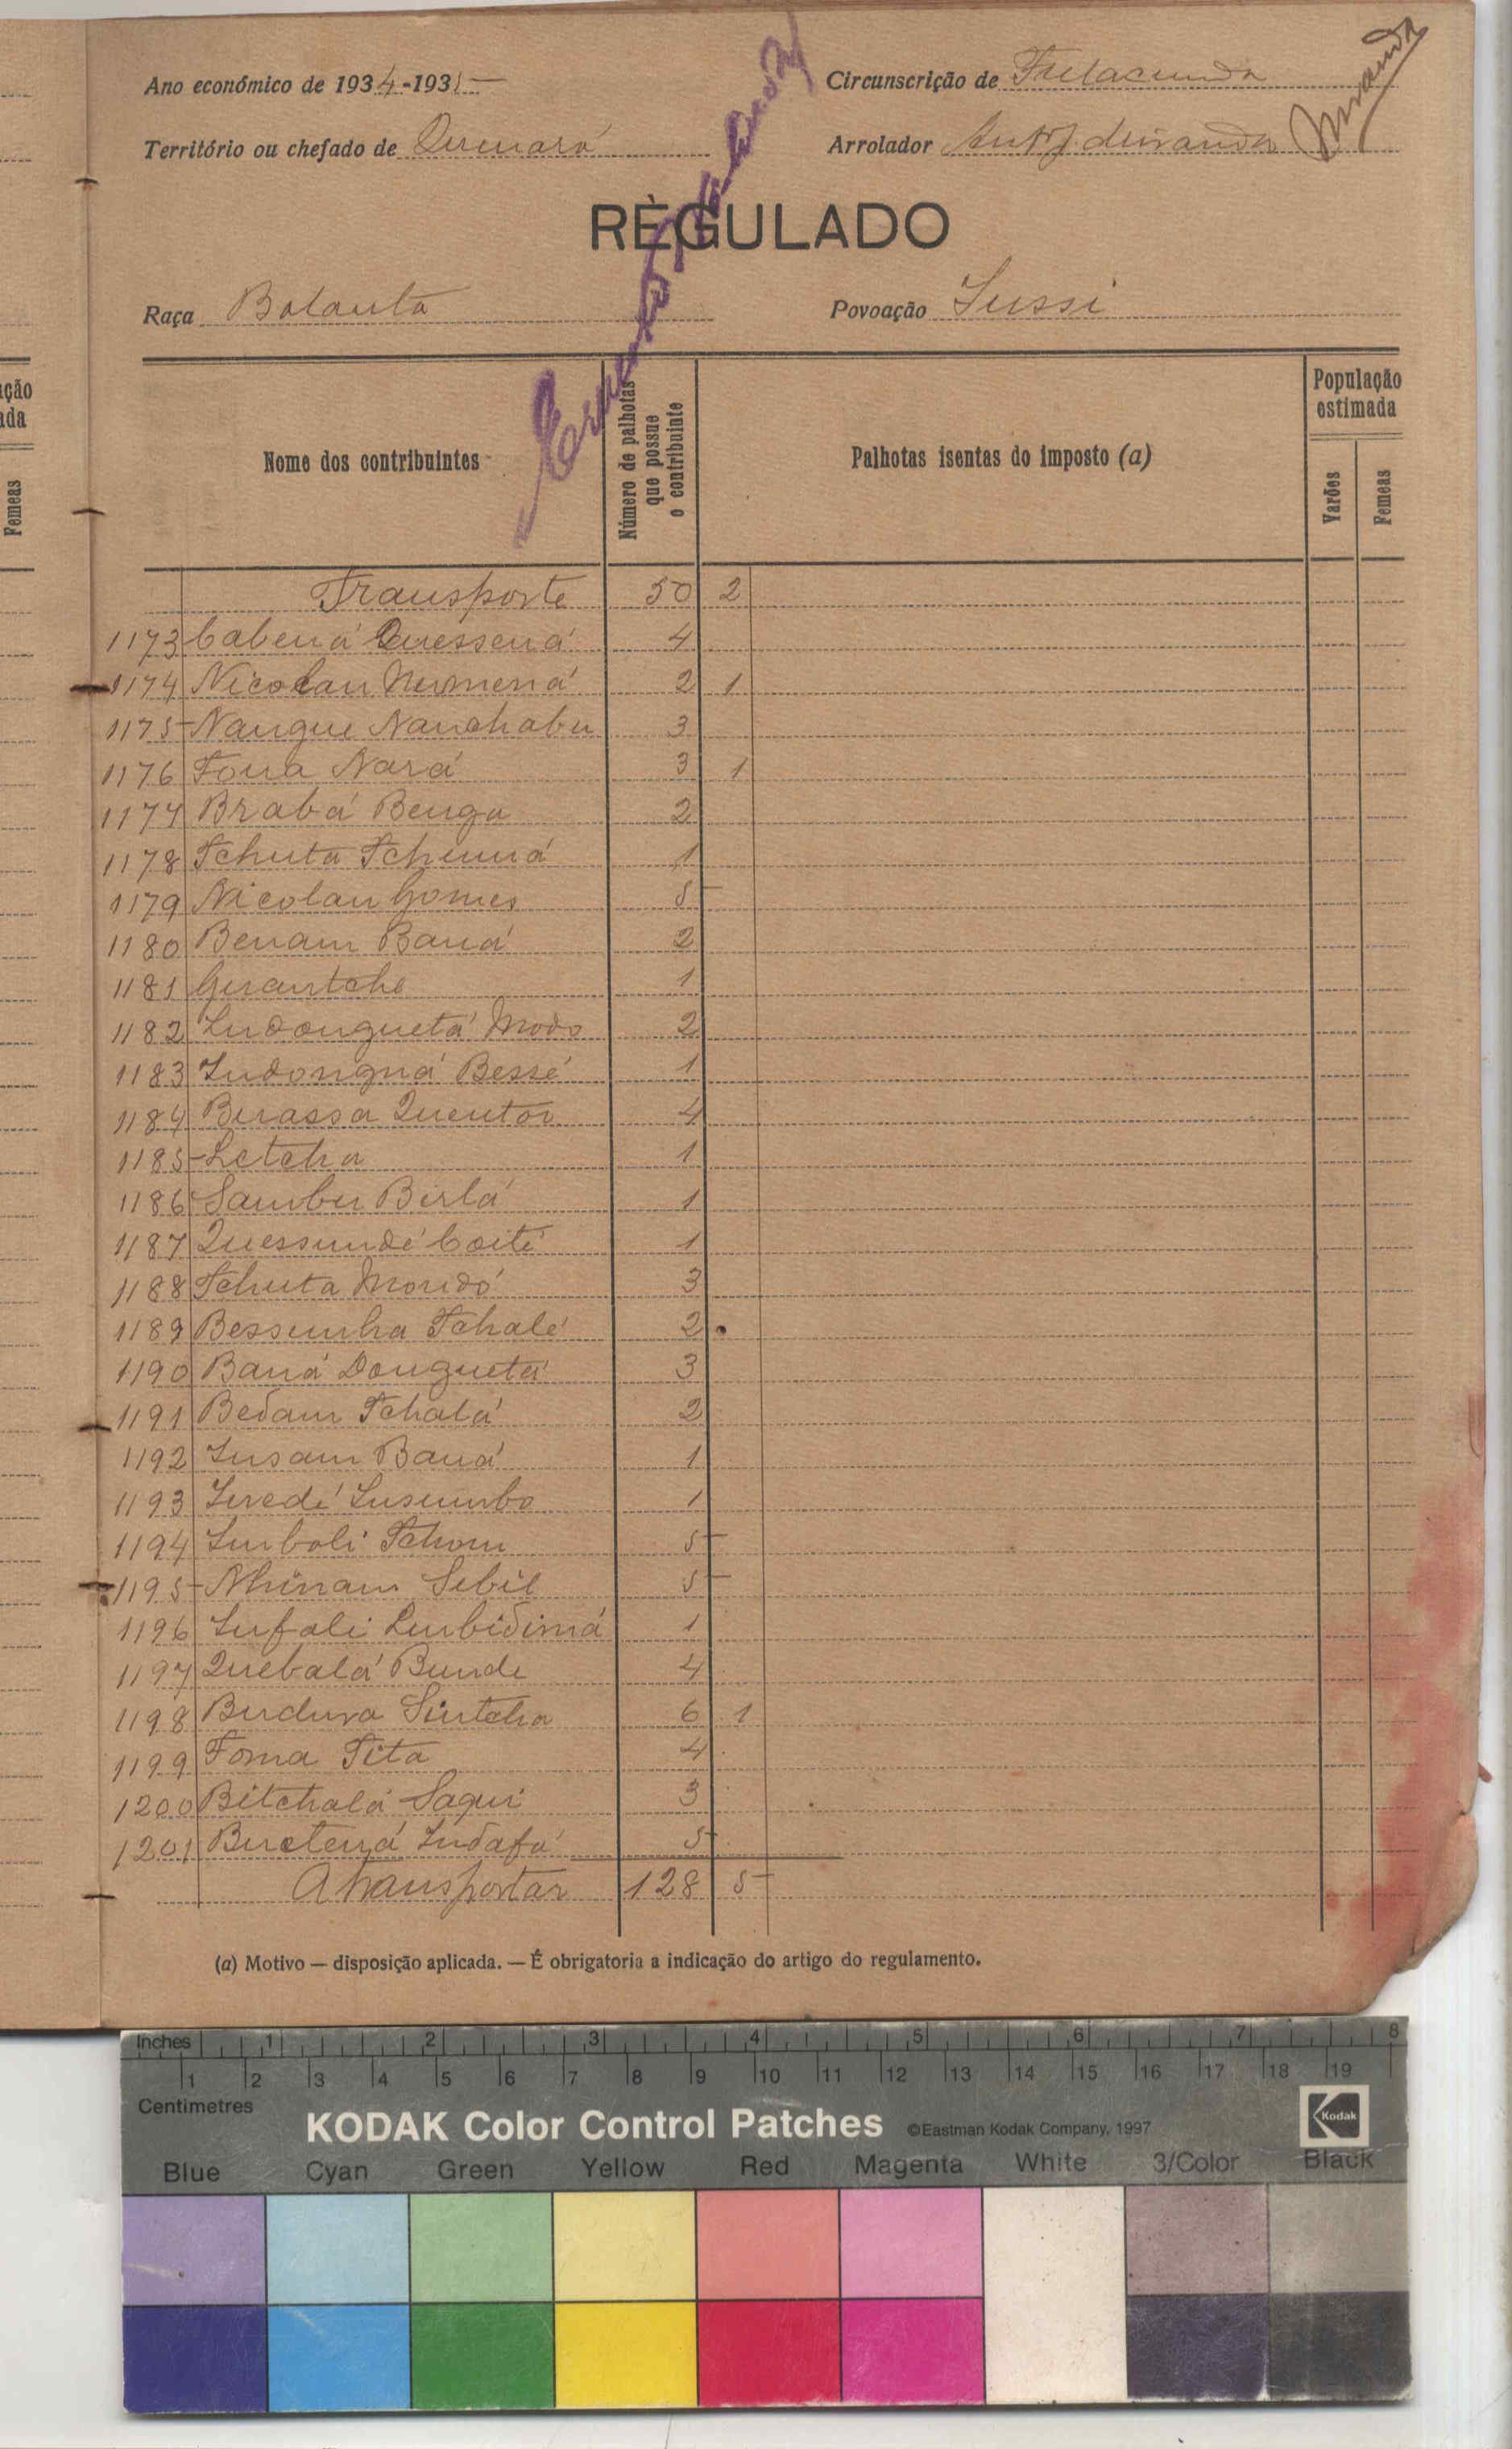 Ano económico de 1934-1935
Circunscrição de Fulacunda
Território ou chefado de Quinará
Arrolador Miranda
Miranda
RÈGULADO
Raça Balanta
Povoação Jussi
ção
ada
Femeas
Nome dos contribuintes
Número de palhotas que possue o contribuinte
Palhotas isentas do imposto (a)
População estimada
Varões
Femeas
Transporte 50 2
1173 Cabená Quessená 4
1174 Nicolau Numená 2 1
1175 Nangue Nanchabu 3
1176 Fona Nará 3 1
1177 Brabá Benga 2
1178 Tchuta Tchumá 1
1179 Nicolau Gomes 5
1180 Benam Baná 2
1181 Guantche 1
1182 Indonguetá Modo 2
1183 Indongná Bessé 1
1184 Burassa Quentor 4
1185 Letcha 1
1186 Sambu Birlá 1
1187 Quessundé Coité 1
1188 Tchuta Mondó 3
1189 Bessunha Tchalé 2
1190 Baná Donguetá 3
1191 Bedam Tchalá 2
1192 Insam Baná 1
1193 Insumbo 1
1194 Imboli Tchom 5
1195 Nhinam Sibil 5
1196 Infali 1
1197 Quebalá Bunde 4
1198 Sintcha 6 1
1199 Foma Tita 4
1200 Bitchalá Saqui 3
1201 Indafá 5
A transportar 128 5
(a) Motivo — disposição aplicada. — É obrigatoria a indicação do artigo do regulamento.
Inches 1 2 3 4 5 6 7 8
1 2 3 4 5 6 7 8 9 10 11 12 13 14 15 16 17 18 19
Centimetres
KODAK Color Control Patches ©Eastman Kodak Company, 1997 Kodak
Blue Cyan Green Yellow Red Magenta White 3/Color Black